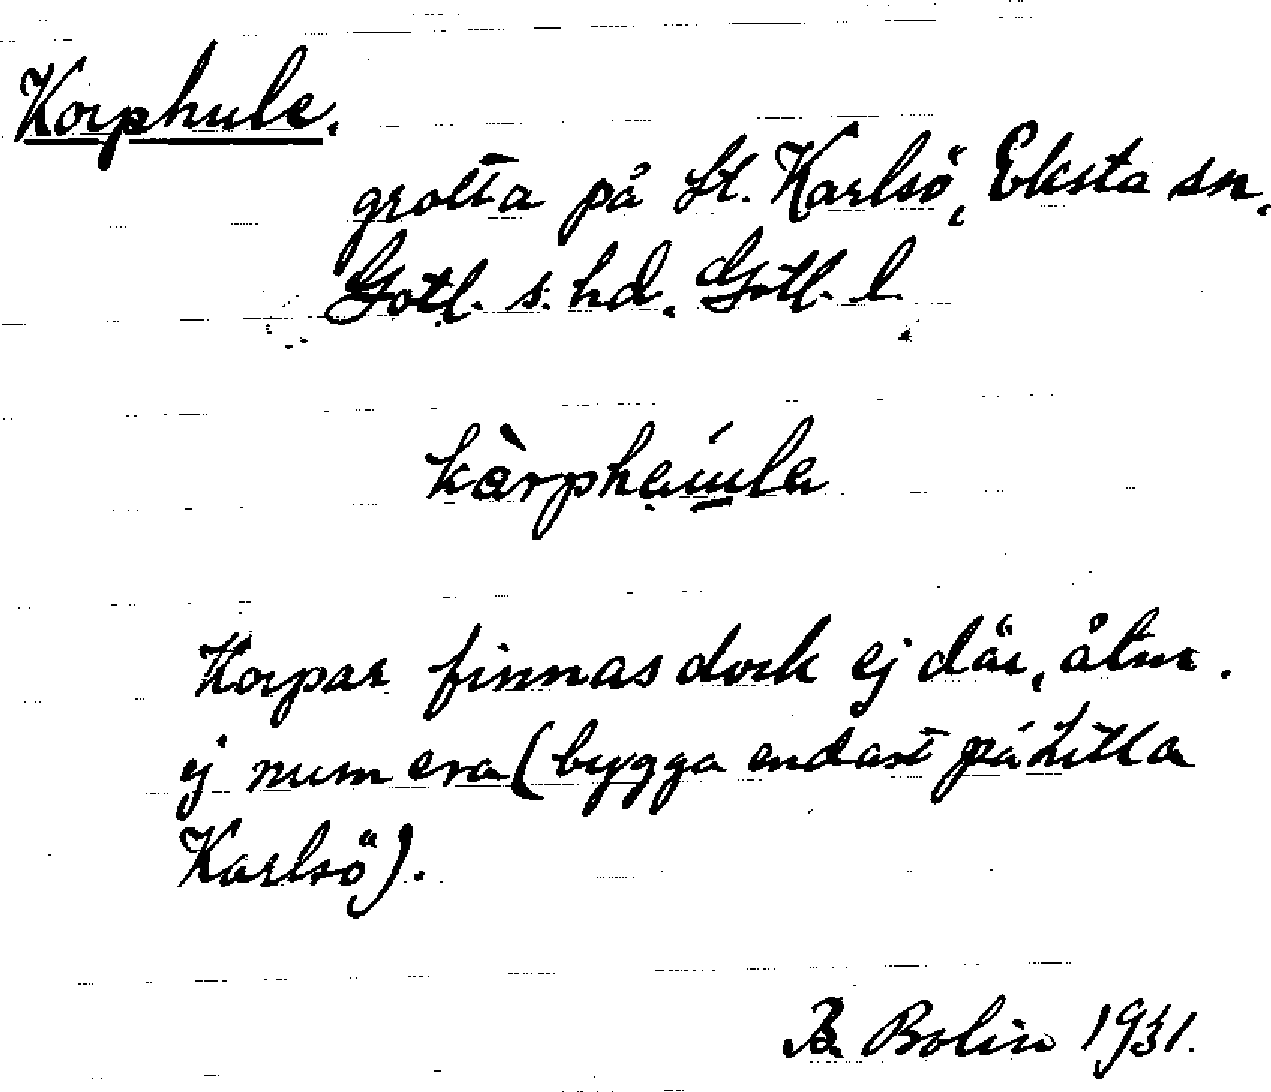 Korphule.
grotta på St. Karlsö, Eksta sn.
Gotl. s. hd. Gotl. l.
kàrphaúla
Korpar finnas dock ej där, åtm.
ej numera (bygga endast på Lilla
Karlsö).
B. Bolin 1931.